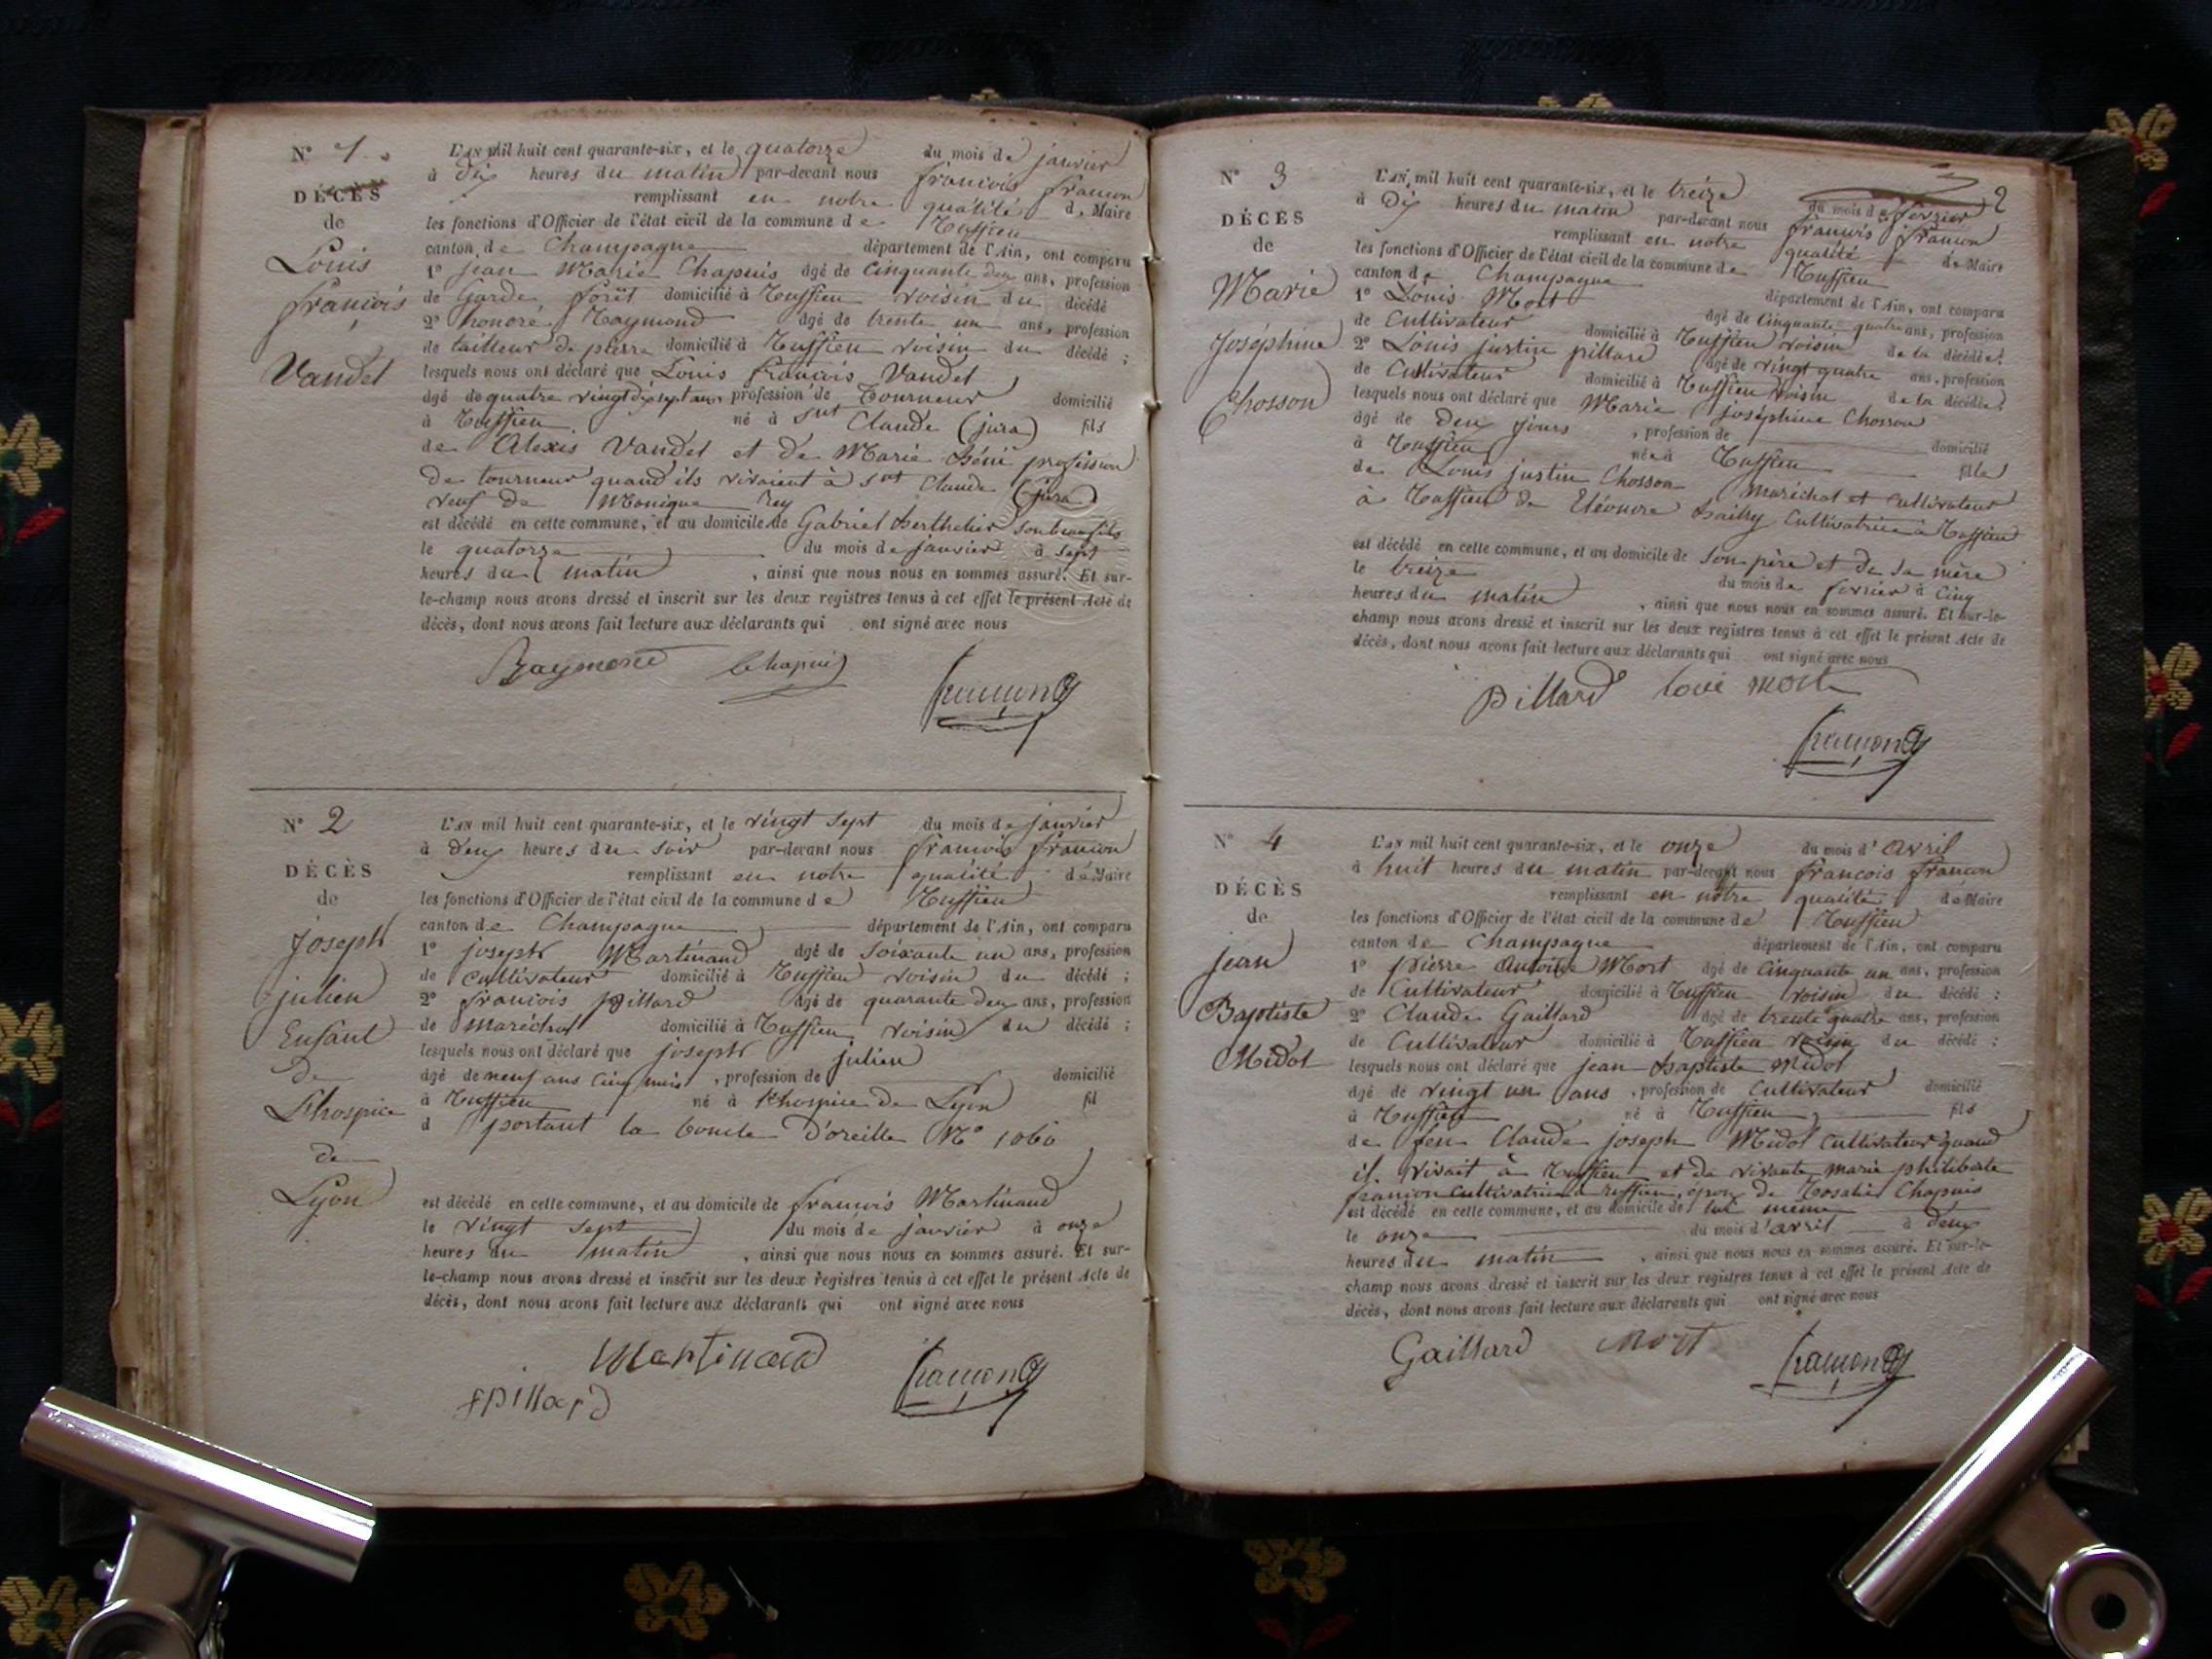 N° 1.
DÉCÈS
de
Louis
françois
Vandel
L'AN mil huit cent quarante-six, et le quatorze du mois de janvier
à dix heures du matin par-devant nous françois francon
remplissant en notre qualité de Maire
les fonctions d'Officier de l'état civil de la commune de Ruffieu
canton de Champagne département de l'Ain, ont comparu
1° jean Marie Chapuis âgé de Cinquante deux ans, profession
de Garde forêt domicilié à Ruffieu voisin du décédé
2° honoré Raymond âgé de trente un ans, profession
de tailleur de pierre domicilié à Ruffieu voisin du décédé ;
lesquels nous ont déclaré que Louis françois Vandel
âgé de quatre vingt dix sept ans profession de Tourneur domicilié
à Ruffieu né à Snt Claude (jura) fils
de Alexis Vandel et de Marie profession
de tourneur quand ils vivaient à snt Claude (jura)
veuf de Monique Rey
est décédé en cette commune, et au domicile de Gabriel Berthelier son beau fils
le quatorze du mois de janvier à Sept
heures du matin , ainsi que nous nous en sommes assuré. Et sur-
le-champ nous avons dressé et inscrit sur les deux registres tenus à cet effet le présent Acte de
décès, dont nous avons fait lecture aux déclarants qui ont signé avec nous
Raymond Chapuis
francon
N° 2
DÉCÈS
de
Joseph
julien
Enfant
de
L'hospice
de
Lyon
L'AN mil huit cent quarante-six, et le vingt sept du mois de janvier
à deux heures du soir par-devant nous francois francon
remplissant en notre qualité de Maire
les fonctions d'Officier de l'état civil de la commune de Ruffieu
canton de Champagne département de l'Ain, ont comparu
1° joseph Martinand âgé de Soixante un ans, profession
de cultivateur domicilié à Ruffieu voisin du décédé ;
2° francois pillard âgé de quarante deux ans, profession
de maréchal domicilié à Ruffieu voisin du décédé ;
lesquels nous ont déclaré que joseph julien
âgé de neuf ans Cinq mois , profession de domicilié
à Ruffieu né à l'hospice de Lyon fil
d portant la boucle d'oreille N° 1060
est décédé en cette commune, et au domicile de francois Martinand
le vingt sept du mois de janvier à onze
heures du matin , ainsi que nous nous en sommes assuré. Et sur-
le-champ nous avons dressé et inscrit sur les deux registres tenus à cet effet le présent Acte de
décès, dont nous avons fait lecture aux déclarants qui ont signé avec nous
Martinand
fpillard francon
2
N° 3
DÉCÈS
de
Marie
Joséphine
Chosson
L'AN mil huit cent quarante-six, et le treize du mois de février
à dix heures du matin par-devant nous francois francon
remplissant en notre qualité de Maire
les fonctions d'Officier de l'état civil de la commune de Ruffieu
canton de Champagne département de l'Ain, ont comparu
1° Louis Mort âgé de Cinquante quatre ans, profession
de Cultivateur domicilié à Ruffieu voisin de la décédée ;
2° Louis justin pillard âgé de vingt quatre ans, profession
de Cultivateur domicilié à Ruffieu voisin de la décédée ;
lesquels nous ont déclaré que Marie joséphine Chosson
âgé de Deux jours , profession de domicilié
à Ruffieu née à Ruffieu fille
de Louis justin Chosson Maréchal et Cultivateur
à Ruffieu de Eléonore Cultivatrice à Ruffieu
est décédé en cette commune, et au domicile de son père et de sa mère
le treize du mois de fevrier à Cinq
heures du matin , ainsi que nous nous en sommes assuré. Et sur-le-
champ nous avons dressé et inscrit sur les deux registres tenus à cet effet le présent Acte de
décès, dont nous avons fait lecture aux déclarants qui ont signé avec nous
pillard loui mort
francon
N° 4
DÉCÈS
de
jean
Baptiste
Midol
L'AN mil huit cent quarante-six, et le onze du mois d'avril
à huit heures du matin par-devant nous francois francon
remplissant en notre qualité de Maire
les fonctions d'Officier de l'état civil de la commune de Ruffieu
canton de Champagne département de l'Ain, ont comparu
1° pierre Antoine Mort âgé de Cinquante un ans, profession
de Cultivateur domicilié à Ruffieu voisin du décédé ;
2° Claude Gaillard âgé de trente quatre ans, profession
de Cultivateur domicilié à Ruffieu voisin du décédé ;
lesquels nous ont déclaré que jean Baptiste Midol
âgé de vingt un ans , profession de Cultivateur domicilié
à Ruffieu né à Ruffieu fils
de feu Claude joseph Midol Cultivateur quand
il vivait à Ruffieu et de vivante marie philiberte
francon Cultivatrice à Ruffieu, epoux de Rosalie Chapuis
est décédé en cette commune, et au domicile de lui même
le onze du mois d'avril à deux
heures du matin , ainsi que nous nous en sommes assuré. Et sur-le-
champ nous avons dressé et inscrit sur les deux registres tenus à cet effet le présent Acte de
décès, dont nous avons fait lecture aux déclarants qui ont signé avec nous
Gaillard Mort francon